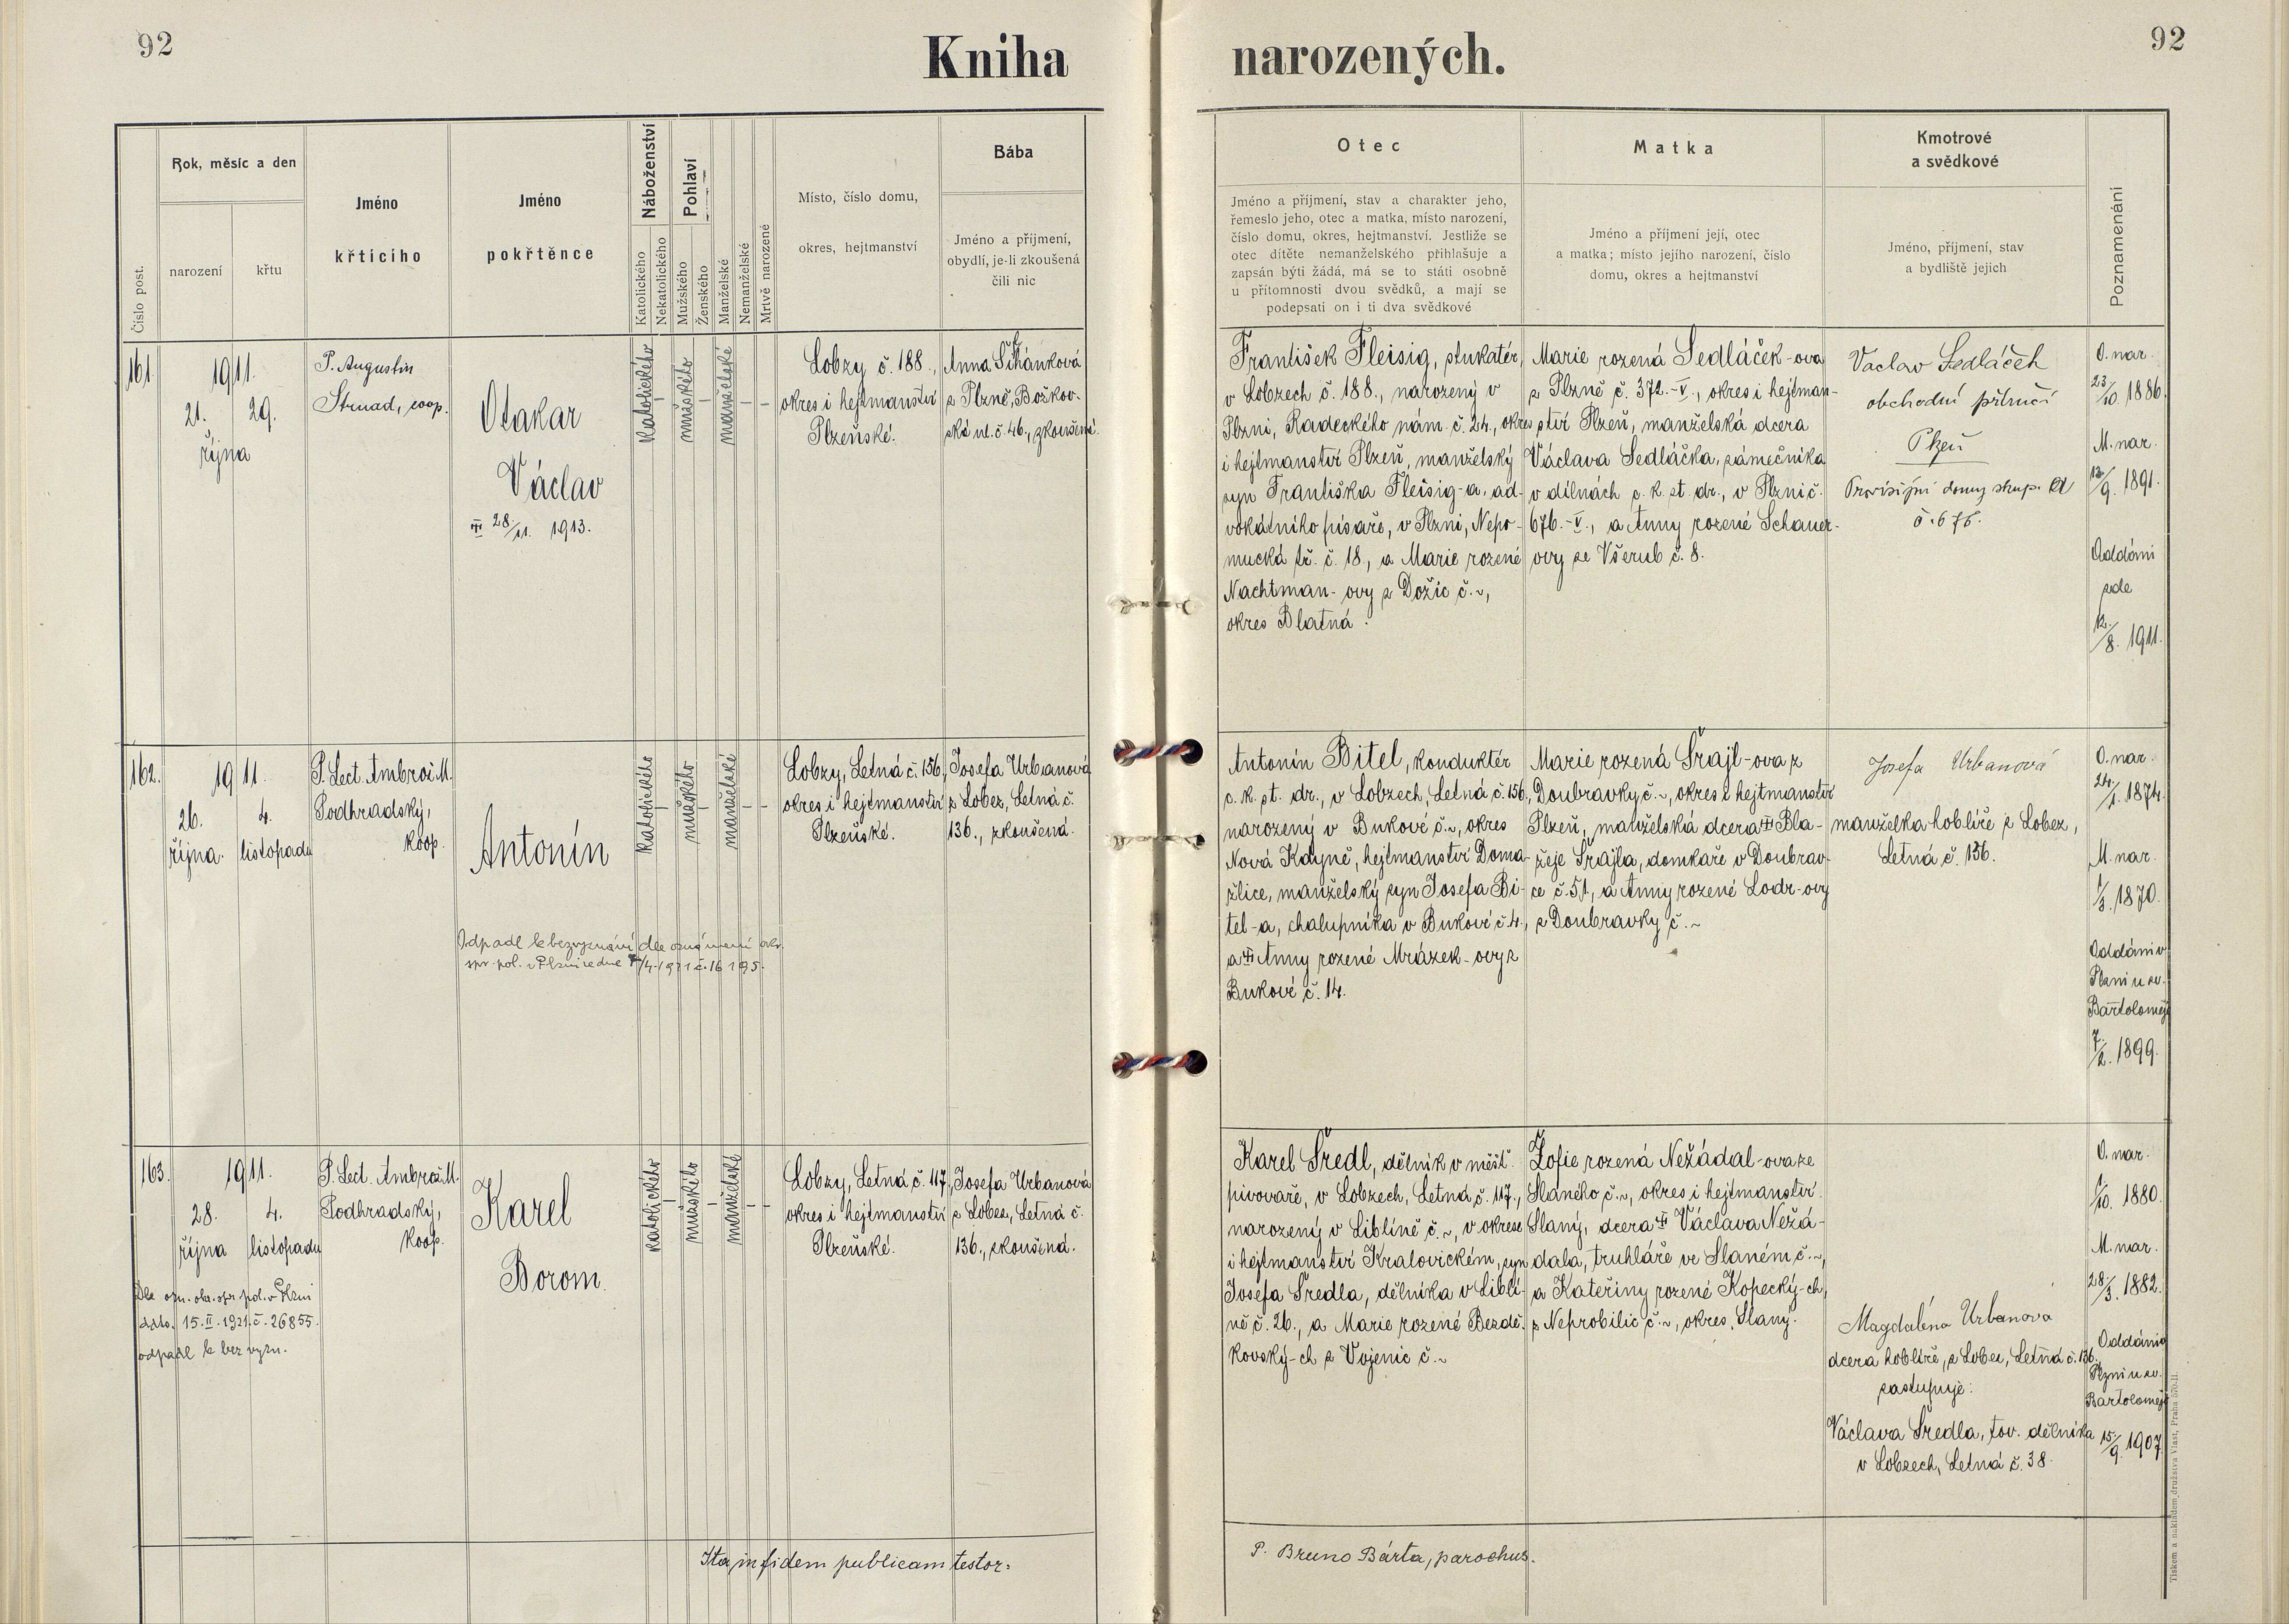 92
Kniha
narozených.
92
Číslo post.
Rok, měsíc a den
narození
křtu
Jméno
křtícího
Jméno
pokřtěnce
Náboženství
Katolického
Nekatolického
Pohlaví
Mužského
Ženského
Manželské
Nemanželské
Mrtvě narozené
Místo, číslo domu,
okres, hejtmanství
Bába
Jméno a příjmení,
obydlí, je-li zkoušená
čili nic
Otec
Jméno a příjmení, stav a charakter jeho,
řemeslo jeho, otec a matka, místo narození,
číslo domu, okres, hejtmanství. Jestliže se
otec dítěte nemanželského přihlašuje a
zapsán býti žádá, má se to státi osobně
u přítomnosti dvou svědků, a mají se
podepsati on i ti dva svědkové
Matka
Jméno a příjmení její, otec
a matka; místo jejího narození, číslo
domu, okres a hejtmanství
Kmotrové
a svědkové
Jméno, příjmení, stav
a bydliště jejich
Poznamenání
161.
1911.
21. 29.
října
P. Augustin
Strnad, coop.
Otakar
Václav
28/11. 1913.
katolického
mužského
manželské
Lobzy č. 188.,
okres i hejtmanství
Plzeňské.
Anna Šťhánková
z Plzně, Božkov-
ská ul. č. 46., zkoušená.
František Fleisig, štukatér,
v Lobzech č. 188., narozený v
Plzni, Radeckého nám. č. 24., okres
i hejtmanství Plzeň, manželský
syn Františka Fleisig-a, ad-
vokátního písaře, v Plzni, Nepo-
mucká tř. č. 18., a Marie rozené
Nachtman-ovy z Dožic č. ~,
okres Blatná.
Marie rozená Sedláček-ova
z Plzně č. 372.-V., okres i hejtman-
ství Plzeň, manželská dcera
Václava Sedláčka, zámečníka
v dílnách c. k. st. dr., v Plzni č.
676.-V., a Anny rozené Schauer-
ovy ze Všerub č. 8.
Vaclav Sedláček
obchodní příručí
Plzeň
Provisijní domy skup. A
č. 676.
O. nar.
23/10. 1886.
M. nar.
12/9. 1891.
Oddáni
zde
12./8. 1911.
162.
1911.
26. 4.
října. listopadu
P. Lect. Ambrož M.
Podhradský,
koop.
Antonín
Odpadl k bezvyznání dle oznámení okr.
spr. pol. v Plzni ze dne 7/4. 1921 č. 16195.
katolického
mužského
manželské
Lobzy, Letná č. 156.,
okres i hejtmanství
Plzeňské.
Josefa Urbanová
z Lobez, Letná č.
136., zkoušená.
Antonín Bitel, konduktér
c. k. st. dr., v Lobzech, Letná č. 156.,
narozený v Bukové č. ~, okres
Nová Kdyně, hejtmanství Doma-
žlice, manželský syn Josefa Bi-
tel-a, chalupníka v Bukové č. 4.,
a Anny rozené Mrázek-ovy z
Bukové č. 14.
Marie rozená Šrajl-ova z
Doubravky č. ~, okres i hejtmanství
Plzeň, manželská dcera Bla-
žeje Šrajla, domkaře v Doubrav-
ce č. 51, a Anny rozené Lodr-ovy
z Doubravky č. ~
Josefa Urbanová
manželka hoblíře z Lobez,
Letná č. 136.
O. nar.
24/1. 1874.
M. nar.
1/3. 1870.
Oddáni v
Plzni u sv.
Bartoloměje
7./2. 1899.
163.
1911.
28. 4.
října listopadu
Dle ozn. okr. spr. pol. v Plzni
ddto. 15. II. 1921. č. 26855.
odpadl k bez vyzn.
P. Lect. Ambrož M.
Podhradský,
koop.
Karel
Borom.
katolického
mužského
manželské
Lobzy, Letná č. 117.,
okres i hejtmanství
Plzeňské.
Josefa Urbanová
z Lobez, Letná č.
136., zkoušená.
Karel Šredl, dělník v měšť.
pivovaře, v Lobzech, Letná č. 117.,
narozený v Liblíně č. ~, v okrese
i hejtmanství Kralovickém, syn
Josefa Šredla, dělníka v Liblí-
ně č. 26., a Marie rozené Bezdě-
kovský-ch z Vojenic č. ~
Žofie rozená Nežádal-ova ze
Slaného č. ~, okres i hejtmanství
Slaný, dcera Václava Nežá-
dala, truhláře ve Slaném č. ~,
a Kateřiny rozené Kopecký-ch,
z Neprobilic č. ~, okres Slaný.
Magdaléna Urbanova
dcera hoblíře, z Lobez, Letná č. 136.,
zastupuje:
Václava Šredla, tov. dělníka
v Lobzech, Letná č. 38.
O. nar.
1/10. 1880.
M. nar.
28/3. 1882.
Oddáni v
Plzni u sv.
Bartoloměje
15./9. 1907.
Ita in fidem publicam testor:
P. Bruno Bárta, parochus.
Tiskem a nákladem družstva Vlast, Praha 570-II.